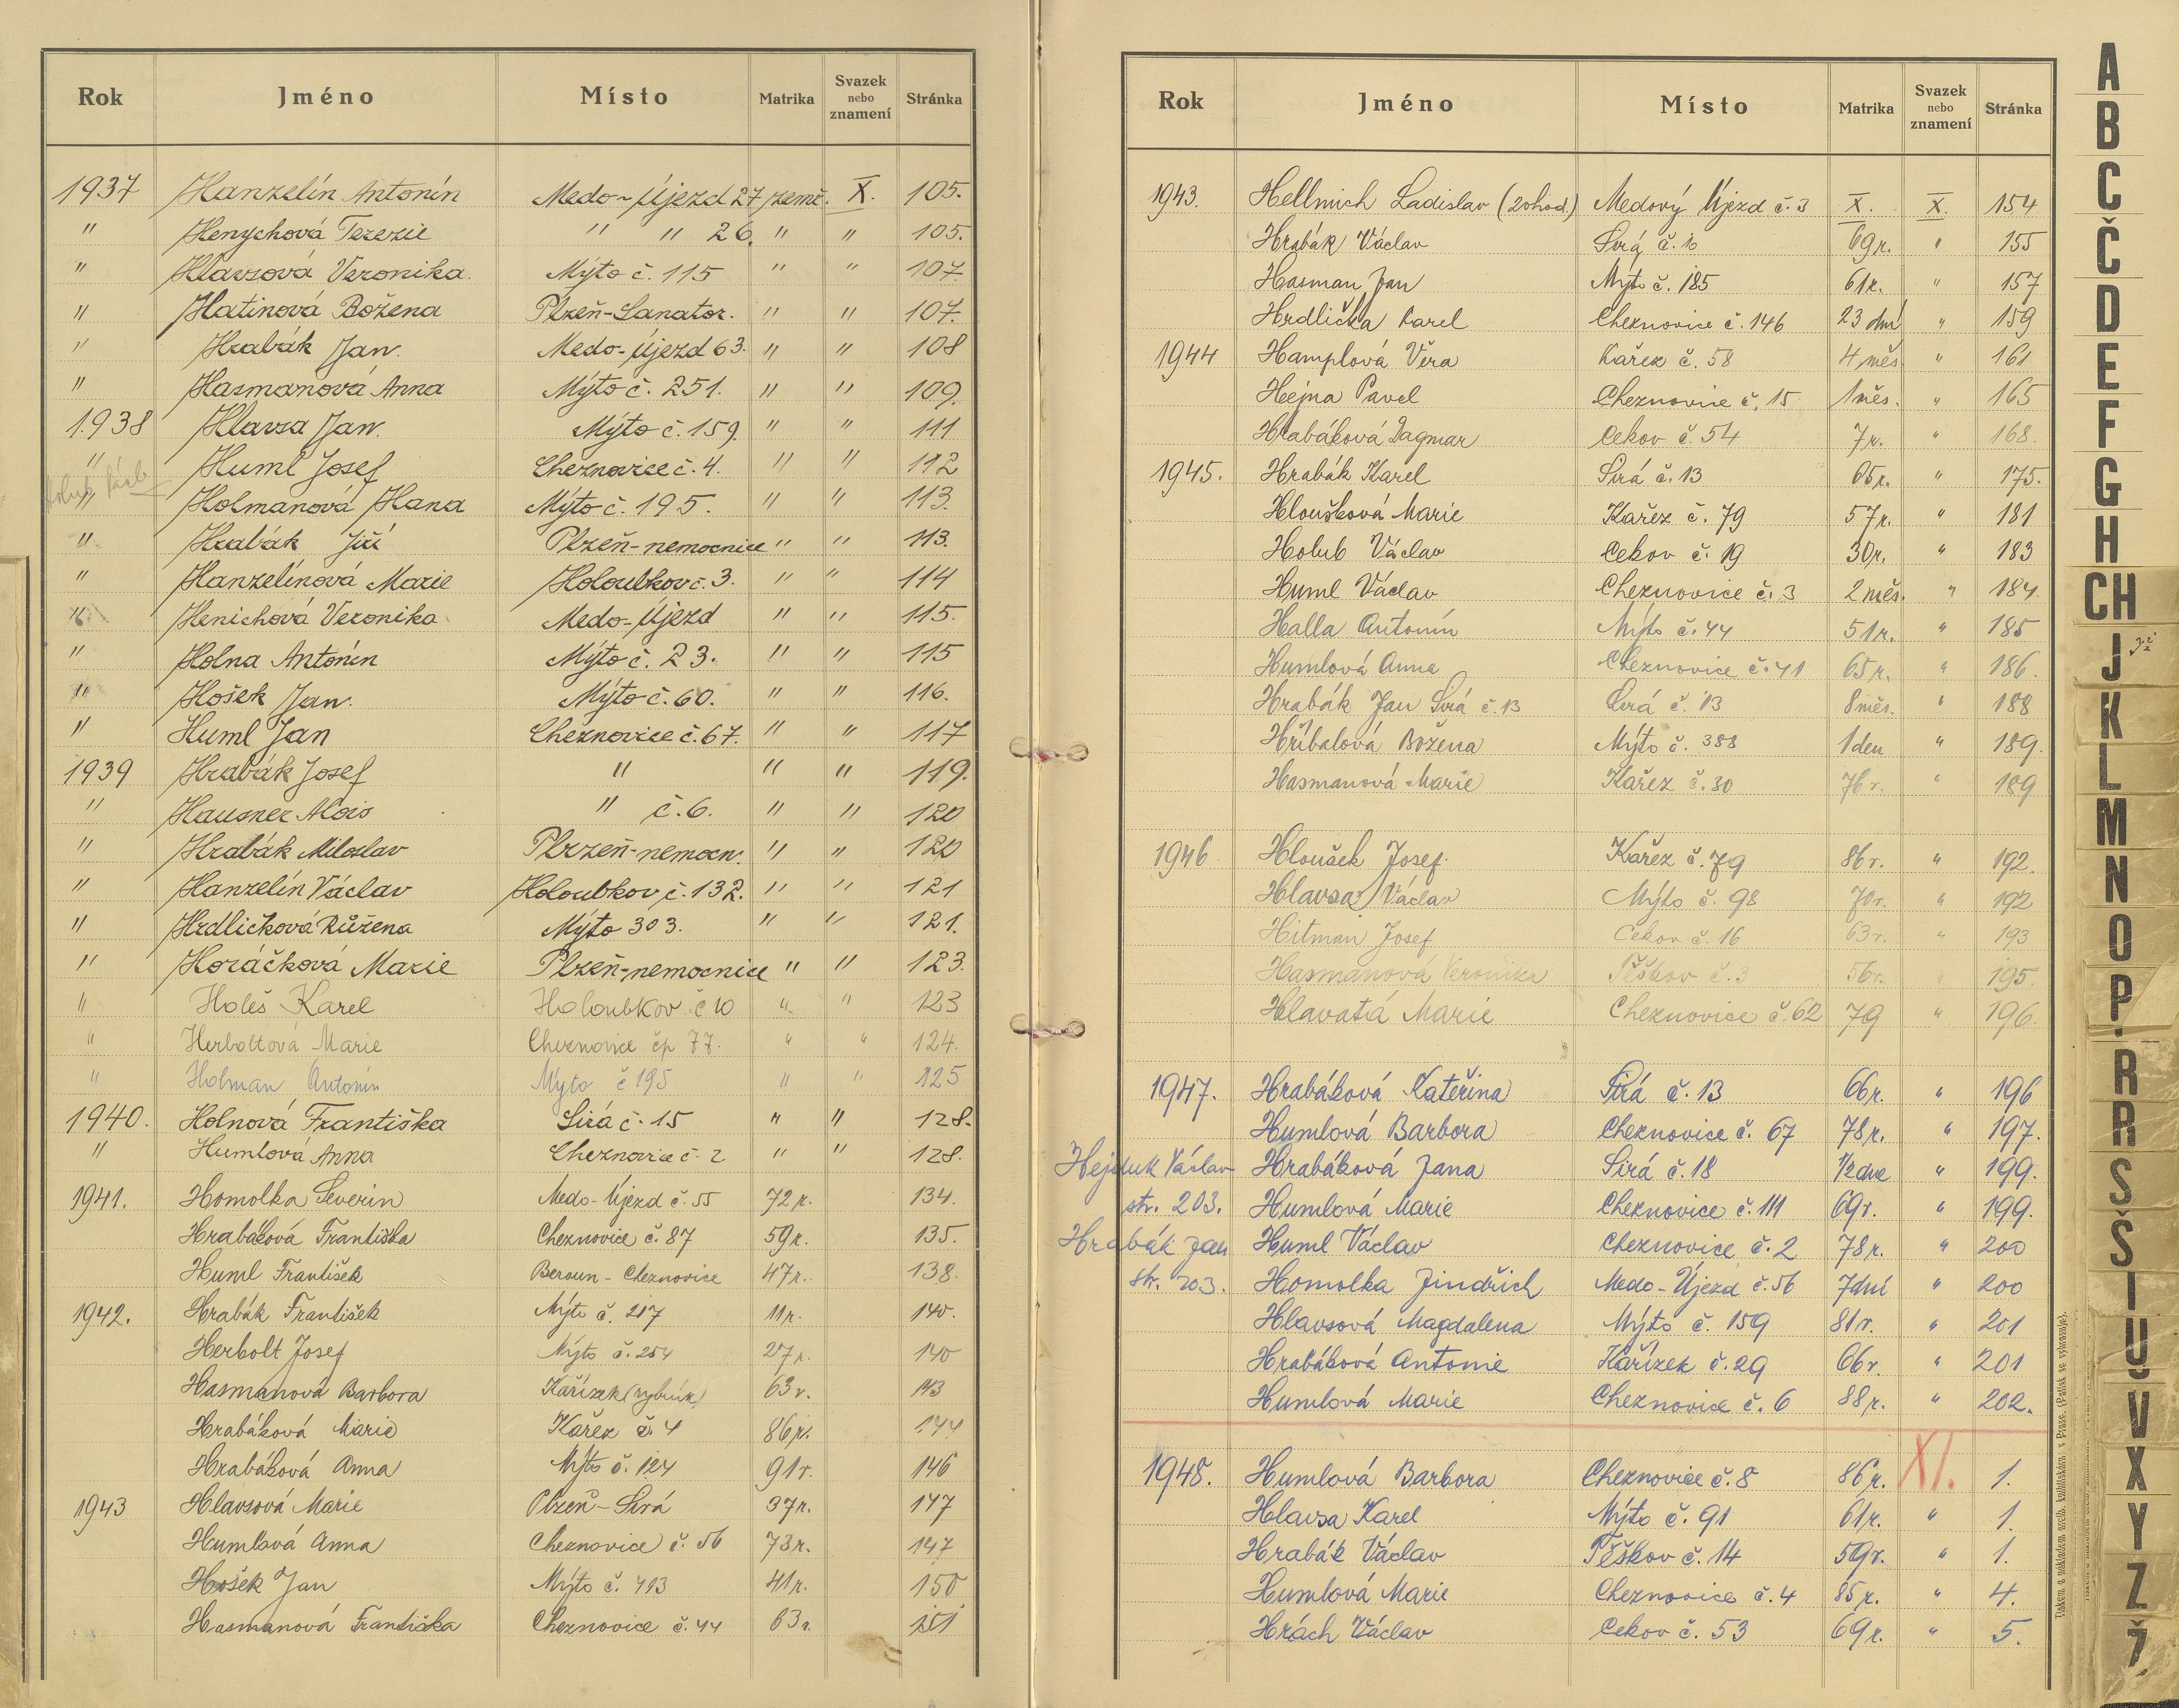 Rok Jméno Místo Matrika Svazek nebo znamení Stránka
1937 Hanzelín Antonín Medo-Újezd 27 zemř. X. 105.
" Henychová Terezie " " 26. " " 105.
" Hlavsová Veronika. Mýto č. 115 " " 107.
" Hatinová Božena Plzeň-Sanator. " " 107.
" Hrabák Jan. Medo-Újezd 63. " " 108
" Hasmanová Anna Mýto č. 251. " " 109.
1938 Hlavsa Jan. Mýto č. 159. " " 111
" Huml Josef Cheznovice č. 4. " " 112
" Holmanová Hana Mýto č. 195. " " 113.
" Hrabák Jiří Plzeň-nemocnice " " 113.
" Hanzelínová Marie Holoubkov č. 3. " " 114
" Henichová Veronika Medo-Újezd " " 115.
" Holna Antonín Mýto č. 23. " " 115
" Hošek Jan. Mýto č. 60. " " 116.
" Huml Jan Cheznovice č. 67. " " 117
1939 Hrabák Josef " " " 119.
" Hausner Alois " č. 6. " " 120
" Hrabák Miloslav Plzeň-nemocn. " " 120
" Hanzelín Václav Holoubkov č. 132. " " 121
" Hrdličková Růžena Mýto 303. " " 121.
" Horáčková Marie Plzeň-nemocnice " " 123.
" Holeš Karel Holoubkov č 10 " " 123
" Herboltová Marie Cheznovice čp 77. " " 124.
" Holman Antonín Mýto č 195 " " 125
1940. Holnová Františka Sirá č. 15 " " 128.
" Humlová Anna Cheznovice č. 2 " " 128.
1941. Homolka Severin Medo-Újezd č. 55 72 r. 134.
Hrabáková Františka Cheznovice č. 87 59 r. 135.
Huml František Beroun - Cheznovice 47 r. 138.
1942. Hrabák František Mýto č. 217 11 r. 140.
Herbolt Josef Mýto č. 254 27 r. 140
Hasmanová Barbora Kařízek (rybník) 63 r. 143
Hrabáková Marie Kařez č. 4 86 r. 144
Hrabáková Anna Mýto č. 124 91 r. 146
1943 Hlavsová Marie Plzeň - Sirá 37 r. 147
Humlová Anna Cheznovice č. 56 73 r. 147
Hošek Jan Mýto č. 413 41 r. 150
Hasmanová Františka Cheznovice č. 44 63 r. 151
Rok Jméno Místo Matrika Svazek nebo znamení Stránka
1943. Hellmich Ladislav (20hod.) Medový Újezd č. 3 X. X. 154
Hrabák Václav Sirá č. 10 69 r. " 155
Hasman Jan Mýto č. 185 61 r. " 157
Hrdlička Karel Cheznovice č. 146 23 dní " 159
1944 Hamplová Věra Kařez č. 58 4 měs " 161
Hejna Pavel Cheznovice č. 15 1 měs. " 165
Hrabáková Dagmar Cekov č. 54 7 r. " 168.
1945. Hrabák Karel Sirá č. 13 65 r. " 175.
Hloušková Marie Kařez č. 79 57 r. " 181
Holub Václav Cekov č. 19 30 r. " 183
Huml Václav Cheznovice č. 3 2 měs. " 184.
Halla Antonín Mýto č. 44 51 r. " 185
Humlová Anna Cheznovice č. 41 65 r. " 186.
Hrabák Jan Sirá č. 13 Sirá č. 13 8 měs. " 188
Hříbalová Božena Mýto č. 388 1 den " 189.
Hasmanová Marie Kařez č. 30 76 r. " 189
1946 Hloušek Josef. Kařez č. 79 86 r. " 192.
Hlavsa Václav Mýto č. 98 70 r. " 192
Hitman Josef Cekov č. 16 63 r. " 193
Hasmanová Veronika Těškov č. 3 56 r. " 195.
Hlavatá Marie Cheznovice č. 62 79 " 196.
1947. Hrabáková Kateřina Sirá č. 13 66 r. " 196
Humlová Barbora Cheznovice č. 67 78 r. " 197.
Hejduk Václav Hrabáková Jana Sirá č. 18 1/2 dne " 199.
str. 203. Humlová Marie Cheznovice č. 111 69 r. " 199.
Hrabák Jan Huml Václav Cheznovice č. 2 78 r. " 200
str. 203. Homolka Jindřich Medo-Újezd č. 56 7 dní " 200
Hlavsová Magdalena Mýto č. 159 81 r. " 201
Hrabáková Antonie Kařízek č. 29 66 r. " 201
Humlová Marie Cheznovice č. 6 88 r. " 202.
1948. Humlová Barbora Cheznovice č. 8 86 r. XI. 1.
Hlavsa Karel Mýto č. 91 61 r. " 1.
Hrabák Václav Těškov č. 14 59 r. " 1.
Humlová Marie Cheznovice č. 4 85 r. " 4.
Hrách Václav Cekov č. 53 69 r. " 5.
A
B
C
Č
D
E
F
G
H
CH
J
K
L
M
N
O
P
R
Ř
S
Š
T
U
V
X
Y
Z
Ž